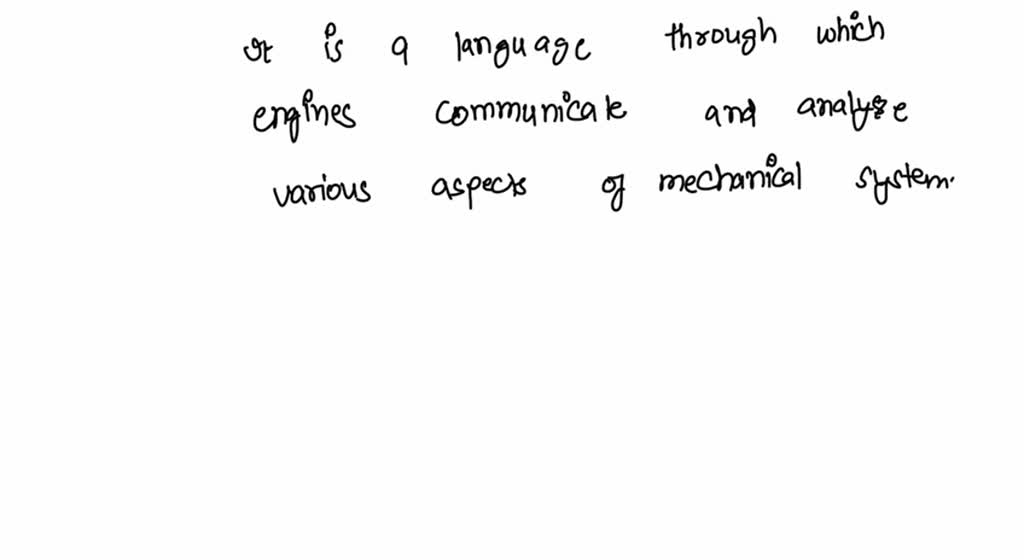 It is a language through which
engines communicate and analyze
various aspects of mechanical system.